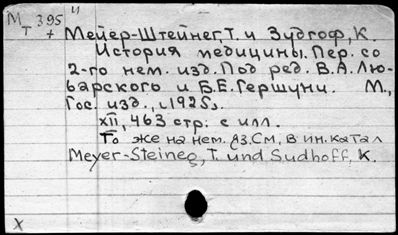 М 395 и
Т +
Мейер-Штейнег, Т. и Зудгоф, К.
История медицины. Пер. со
2-го нем. изд. Под ред. В.А. Лю-
барского и Б.Е. Гершуни. М.,
Гос. изд., [1925].
XII, 463 стр. с илл.
То же на нем. яз. См. в ин. катал
Meyer-Steineg, T. und Sudhoff, K.
X